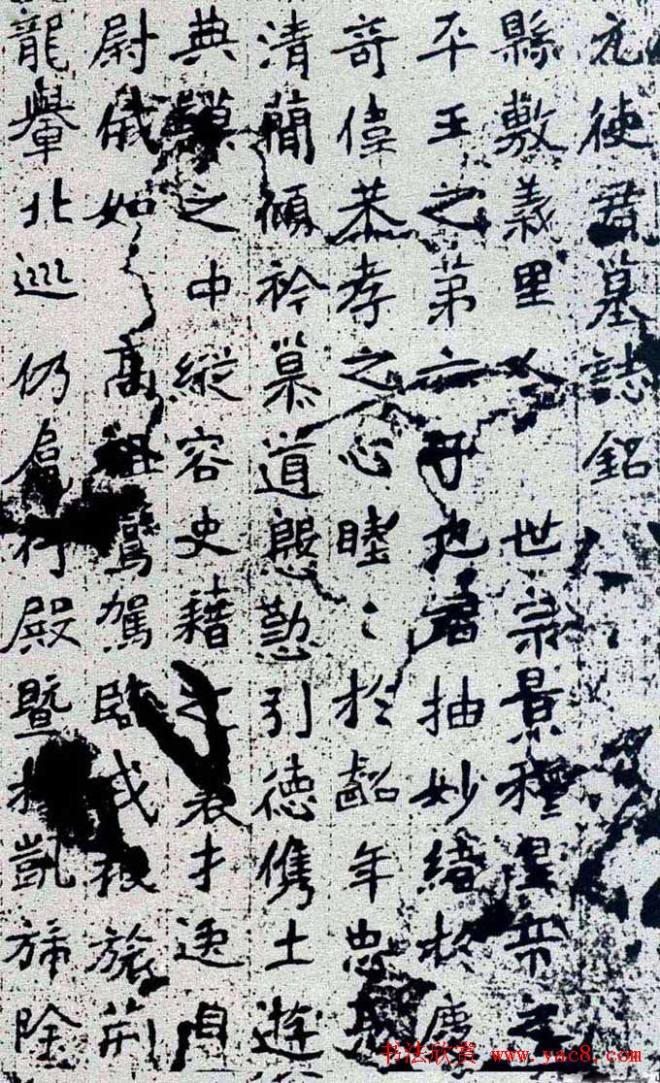 元使君墓誌銘
縣敷義里人 世宗景穆皇帝之
平王之第六子也君抽妙緒於
奇偉恭孝之心睦〻於齠年忠
清簡傾衿慕道慇懃引德儁士遊
典謨之中縱容史藉之
尉俄如 高祖鸞駕臨戎振旅荊
龍轝北巡仍 行殿暨 凱旆除
书法欣赏 www.yac8.com